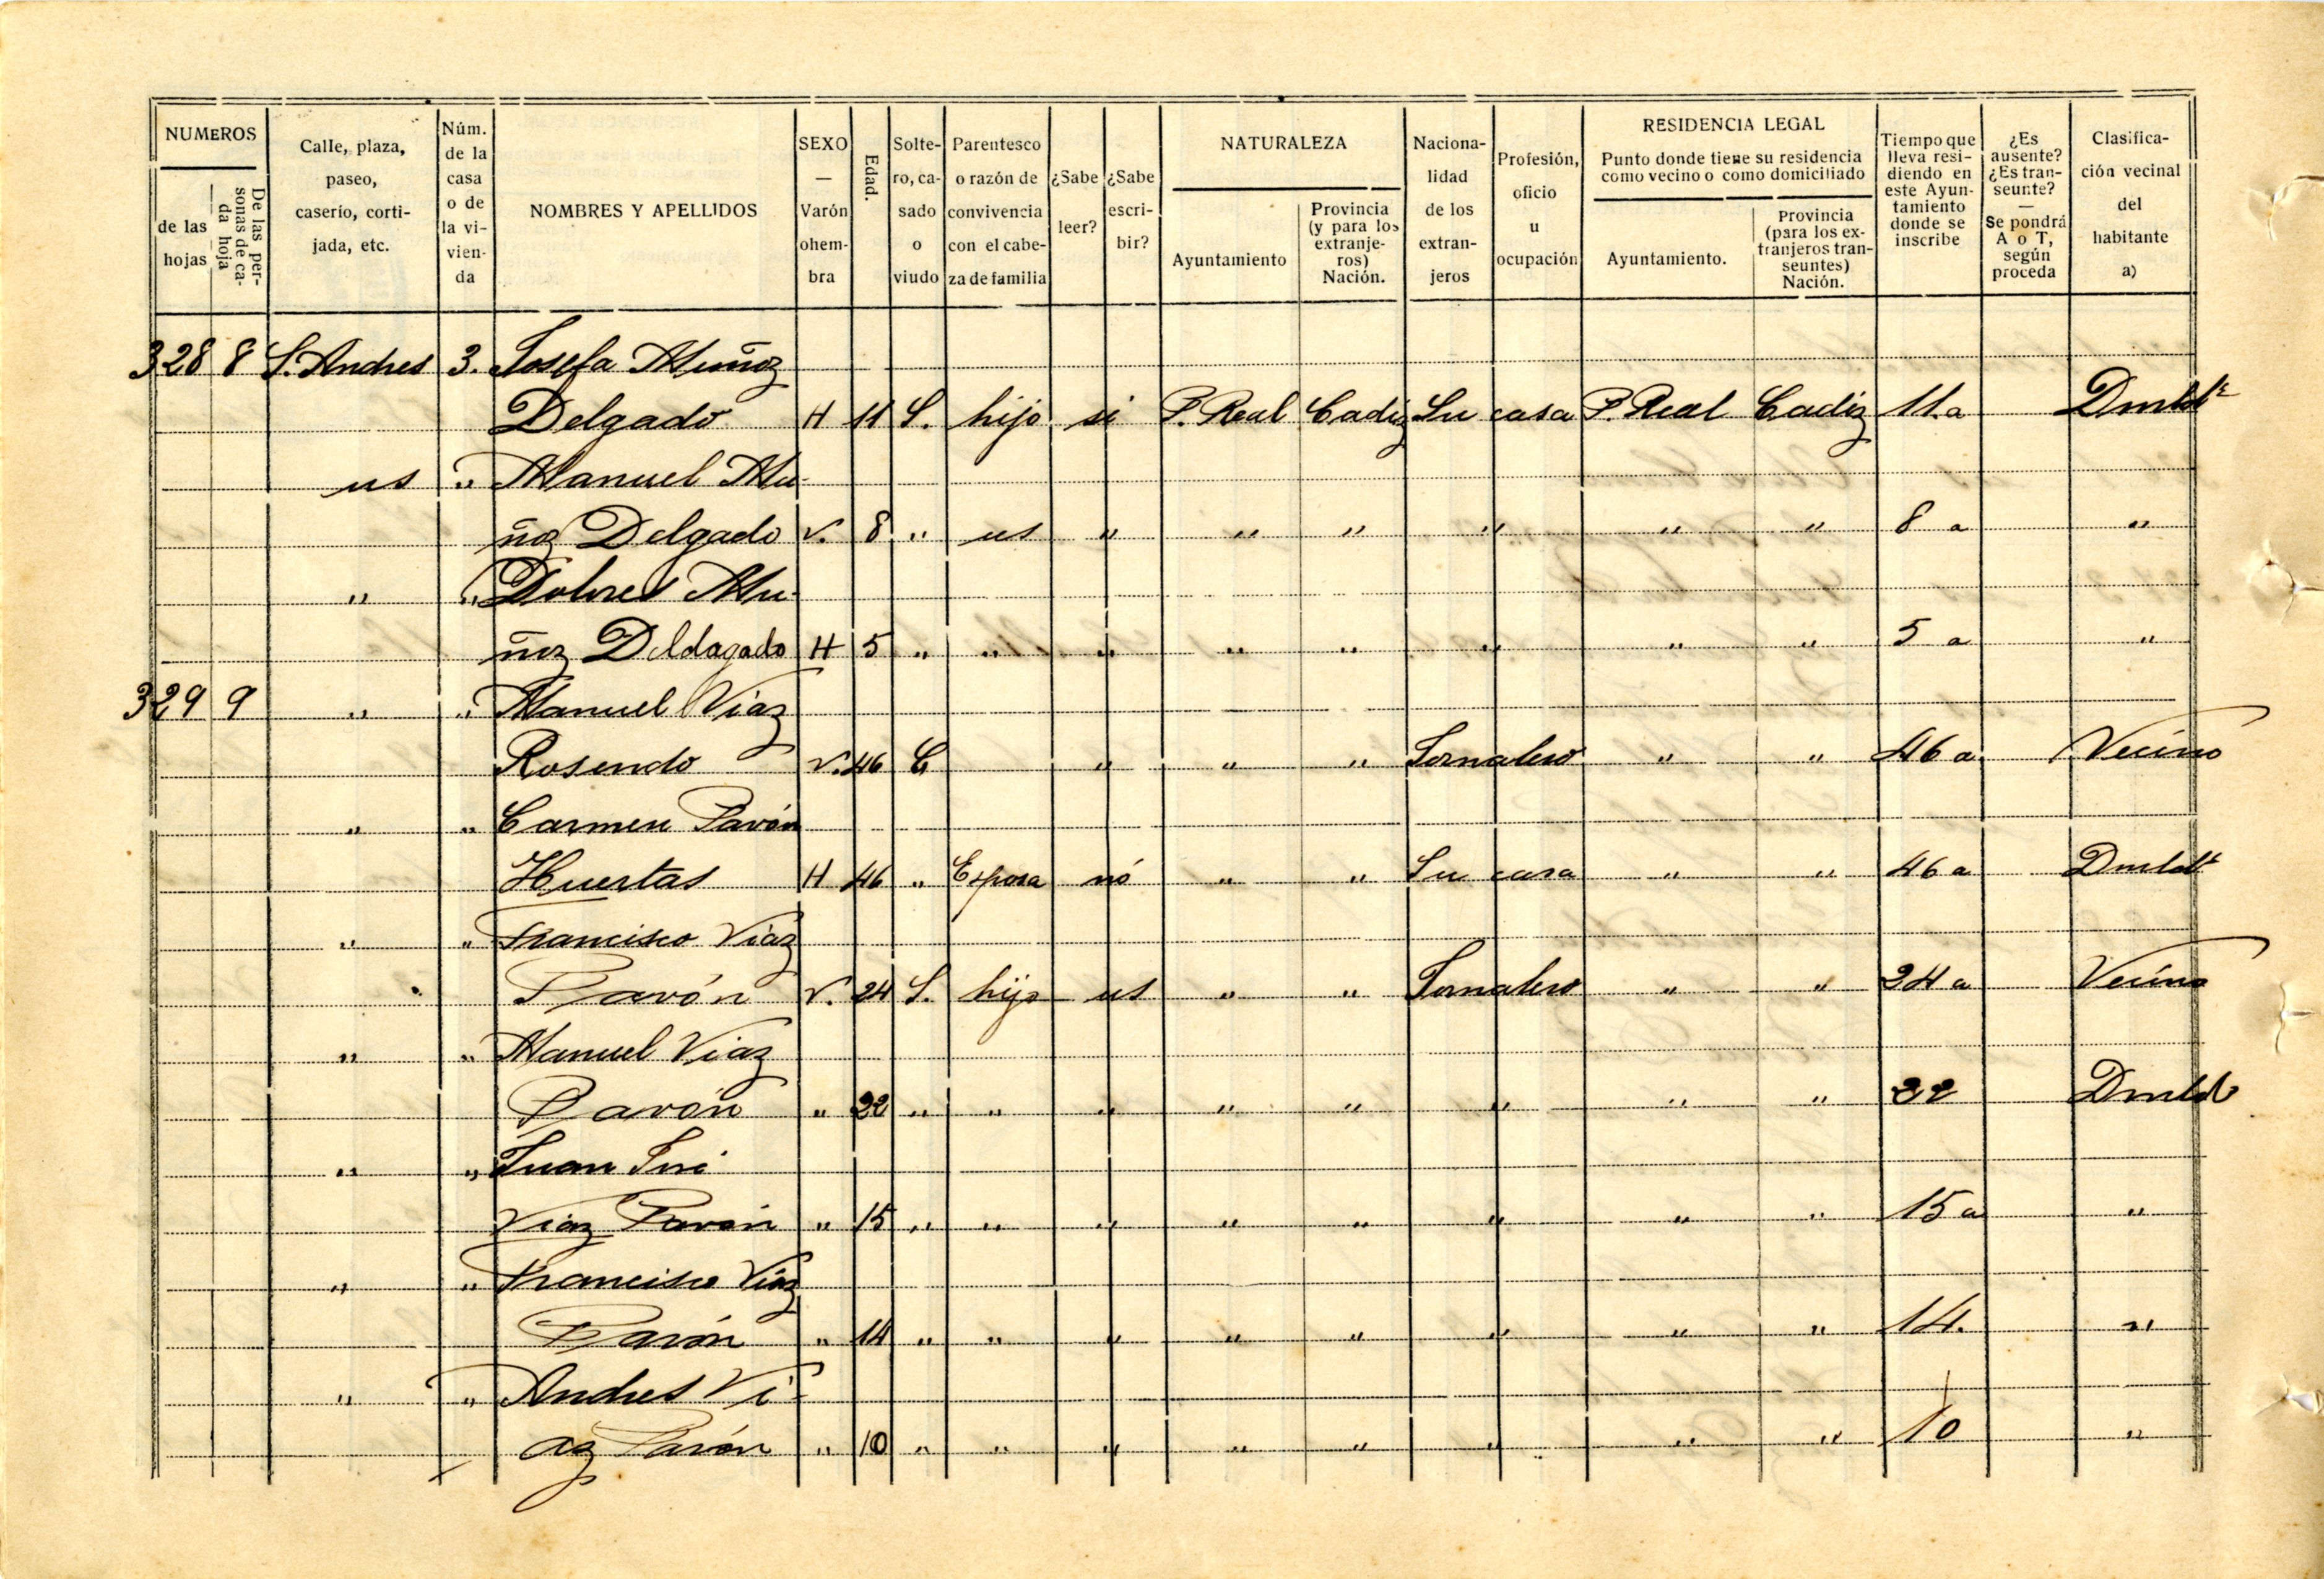 NUMEROS
de las hojas
De las personas de cada hoja
Calle, plaza, paseo, caserío, cortijada, etc.
Núm. de la casa o de la vivienda
NOMBRES Y APELLIDOS
SEXO — Varón o hembra
Edad.
Soltero, casado o viudo
Parentesco o razón de convivencia con el cabeza de familia
¿Sabe leer?
¿Sabe escribir?
NATURALEZA
Ayuntamiento
Provincia (y para los extranjeros) Nación.
Nacionalidad de los extranjeros
Profesión, oficio u ocupación
RESIDENCIA LEGAL
Punto donde tiene su residencia como vecino o como domiciliado
Ayuntamiento.
Provincia (para los extranjeros transeuntes) Nación.
Tiempo que lleva residiendo en este Ayuntamiento donde se inscribe
¿Es ausente? ¿Es transeunte? — Se pondrá A o T, según proceda
Clasificación vecinal del habitante a)
328 8 S. Andres 3. Josefa Muñoz
Delgado H 11 S. hijo si P. Real Cadiz Su casa P. Real Cadiz 11 a Dmldº
us " Manuel Mu-
ñoz Delgado V. 8 " us " " " " " " 8 a "
" " Dolores Mu-
ñoz Deldagado H 5 " " " " " " " " 5 a "
329 9 " " Manuel Viaz
Rosendo V. 46 C " " " Jornalero " " 46 a Vecino
" " Carmen Pavón
Huertas H 46 " Esposa nó " " Su casa " " 46 a Dmldº
" " Francisco Viaz
Pavón V. 24 S. hijo us " " Jornalero " " 24 a Vecino
" " Manuel Viaz
Pavón " 22 " " " " " " " " 22 Dmld
" " Juan José
Viaz Pavón " 15 " " " " " " " " 15 a "
" " Francisco Viaz
Pavón " 14 " " " " " " " " 14. "
" " Andres Vi-
az Pavón " 10 " " " " " " " " 10 "